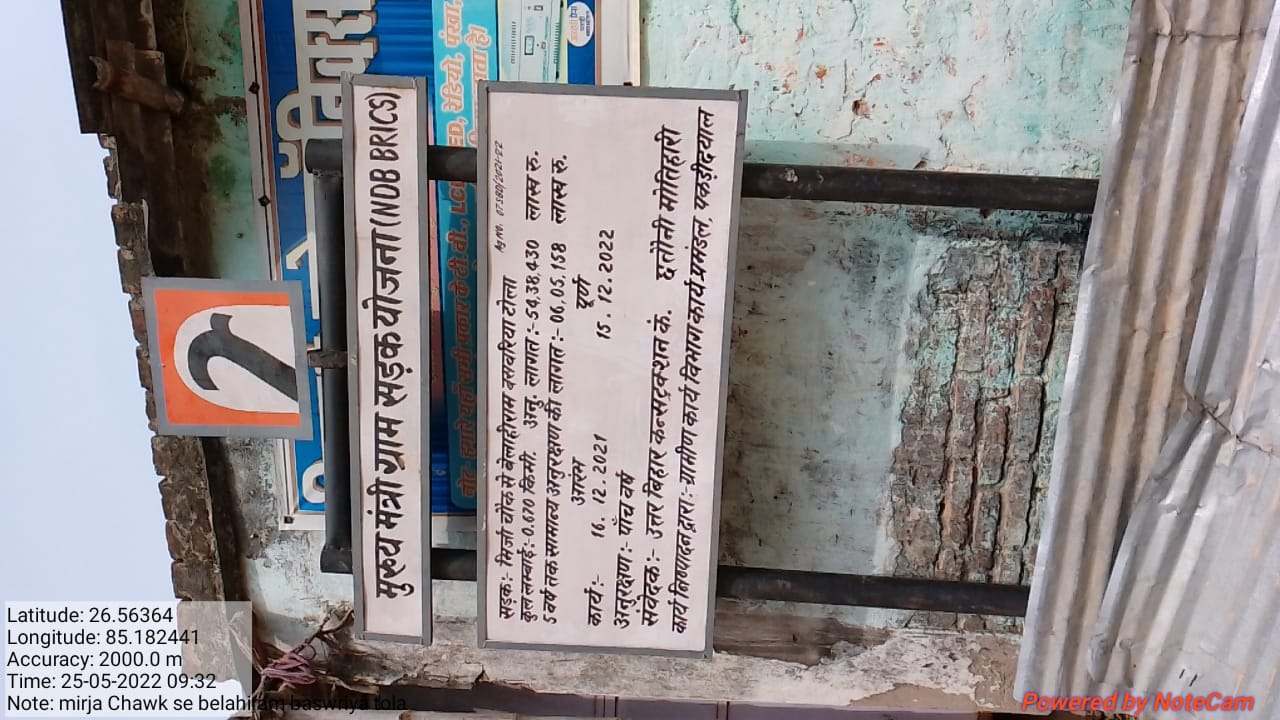 मुख्य मंत्री ग्राम सड़क योजना (NDB BRICS)
Ag No. 07SBD/2021-22
सड़क:- मिर्जा चौक से बेलाहीराम बसवरिया टोला
कुल लम्बाई:- 0.670 कि.मी. अनु. लागत :- 54.38.430 लाख रु.
5 वर्षे तक सामान्य अनुरक्षण की लागत:- 06.05.158 लाख रु.
आरम्भ पूर्ण
कार्य:- 16.12.2021 15.12.2022
अनुरक्षण:- पाँच वर्ष
संवेदक:- उत्तर बिहार कन्सट्रक्शन कं. छतौनी मोतिहारी
कार्य निष्पादन द्वारा:- ग्रामीण कार्य विभाग कार्य प्रमंडल, पकड़ीदयाल
नोट- हमारे यहाँ सभी प्रकार के टी.वी., LCD, रेडियो, पंखा,
Latitude: 26.56364
Longitude: 85.182441
Accuracy: 2000.0 m
Time: 25-05-2022 09:32
Note: mirja Chawk se belahiram baswriya tola
Powered by NoteCam